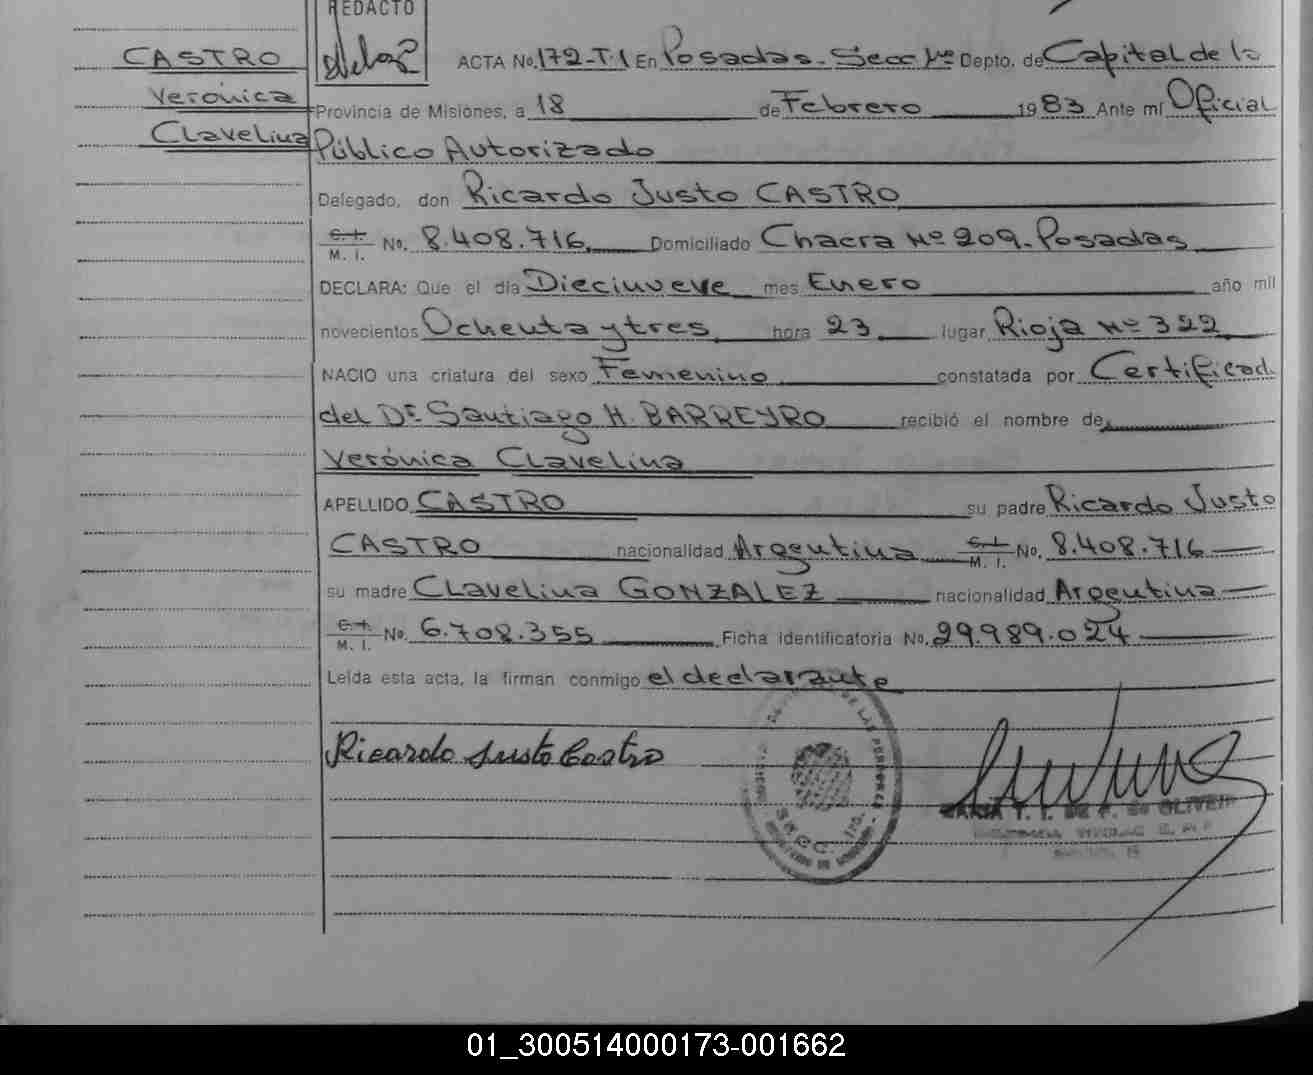 REDACTO
CASTRO
Verónica
Clavelina
ACTA No. 172-T.1 En Posadas- Secc 1ra Depto. de Capital de la
Provincia de Misiones, a 18 de Febrero 1983 Ante mí Oficial
Público Autorizado
Delegado, don Ricardo Justo CASTRO
C. I. M. I. No. 8.408.716. Domiciliado Chacra Nº 209- Posadas
DECLARA: Que el día Diecinueve mes Enero año mil
novecientos Ochenta y tres hora 23 lugar Rioja Nº 322
NACIO una criatura del sexo Femenino constatada por Certificad
del Dr. Santiago H. BARREYRO recibió el nombre de
Verónica Clavelina
APELLIDO CASTRO su padre Ricardo Justo
CASTRO nacionalidad Argentina C. I. M. I. No. 8.408.716
su madre Clavelina GONZALEZ nacionalidad Argentina
C. I. M. I. No. 6.708.355 Ficha identificatoria No. 29.989.024
Leída esta acta, la firman conmigo el declarante
Ricardo Justo Castro
DE LAS PERSONAS
MARIA T. I. DE F. de OLIVEIR
01_300514000173-001662